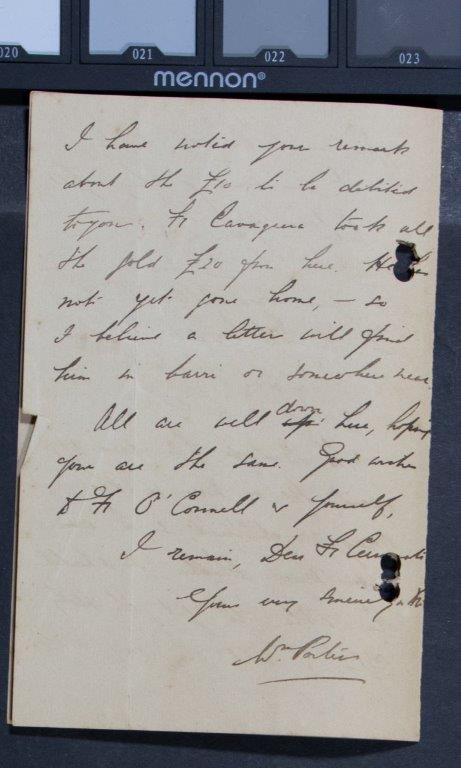 020 021 022 023
mennon®
I have noted your remark
about the £10 to be debited
to you. Fr Cavagnera took all
the gold £20 from here. He has
not yet gone home, — so
I believe a letter will find
him in barri or somewhere near.
All are well down here, hoping
you are the same. Good wishes
to Fr O'Connell & yourself,
I remain, Dear Fr
Yours very sincerely in
Wm Porter